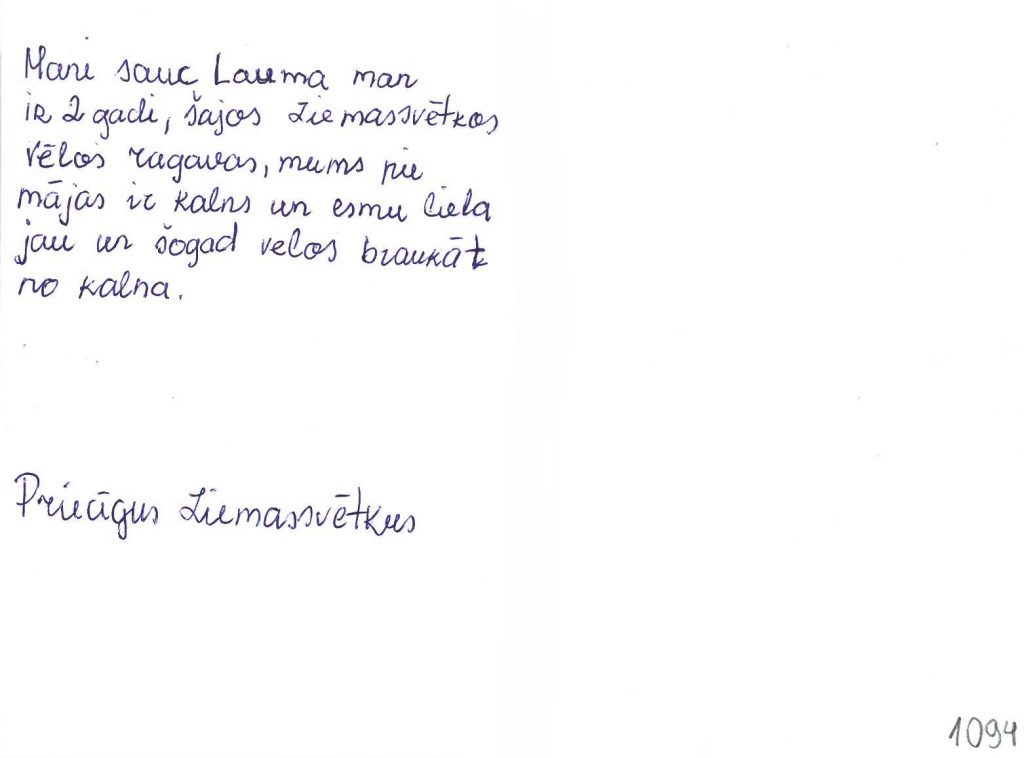 Mani sauc Lauma man
ir 2 gadi, šajos Ziemassvētkos
vēlos ragavas, mums pie
mājas ir kalns un esmu liela
jau un šogad velos braukāt
no kalna.
Priecīgus Ziemassvētkus
1094